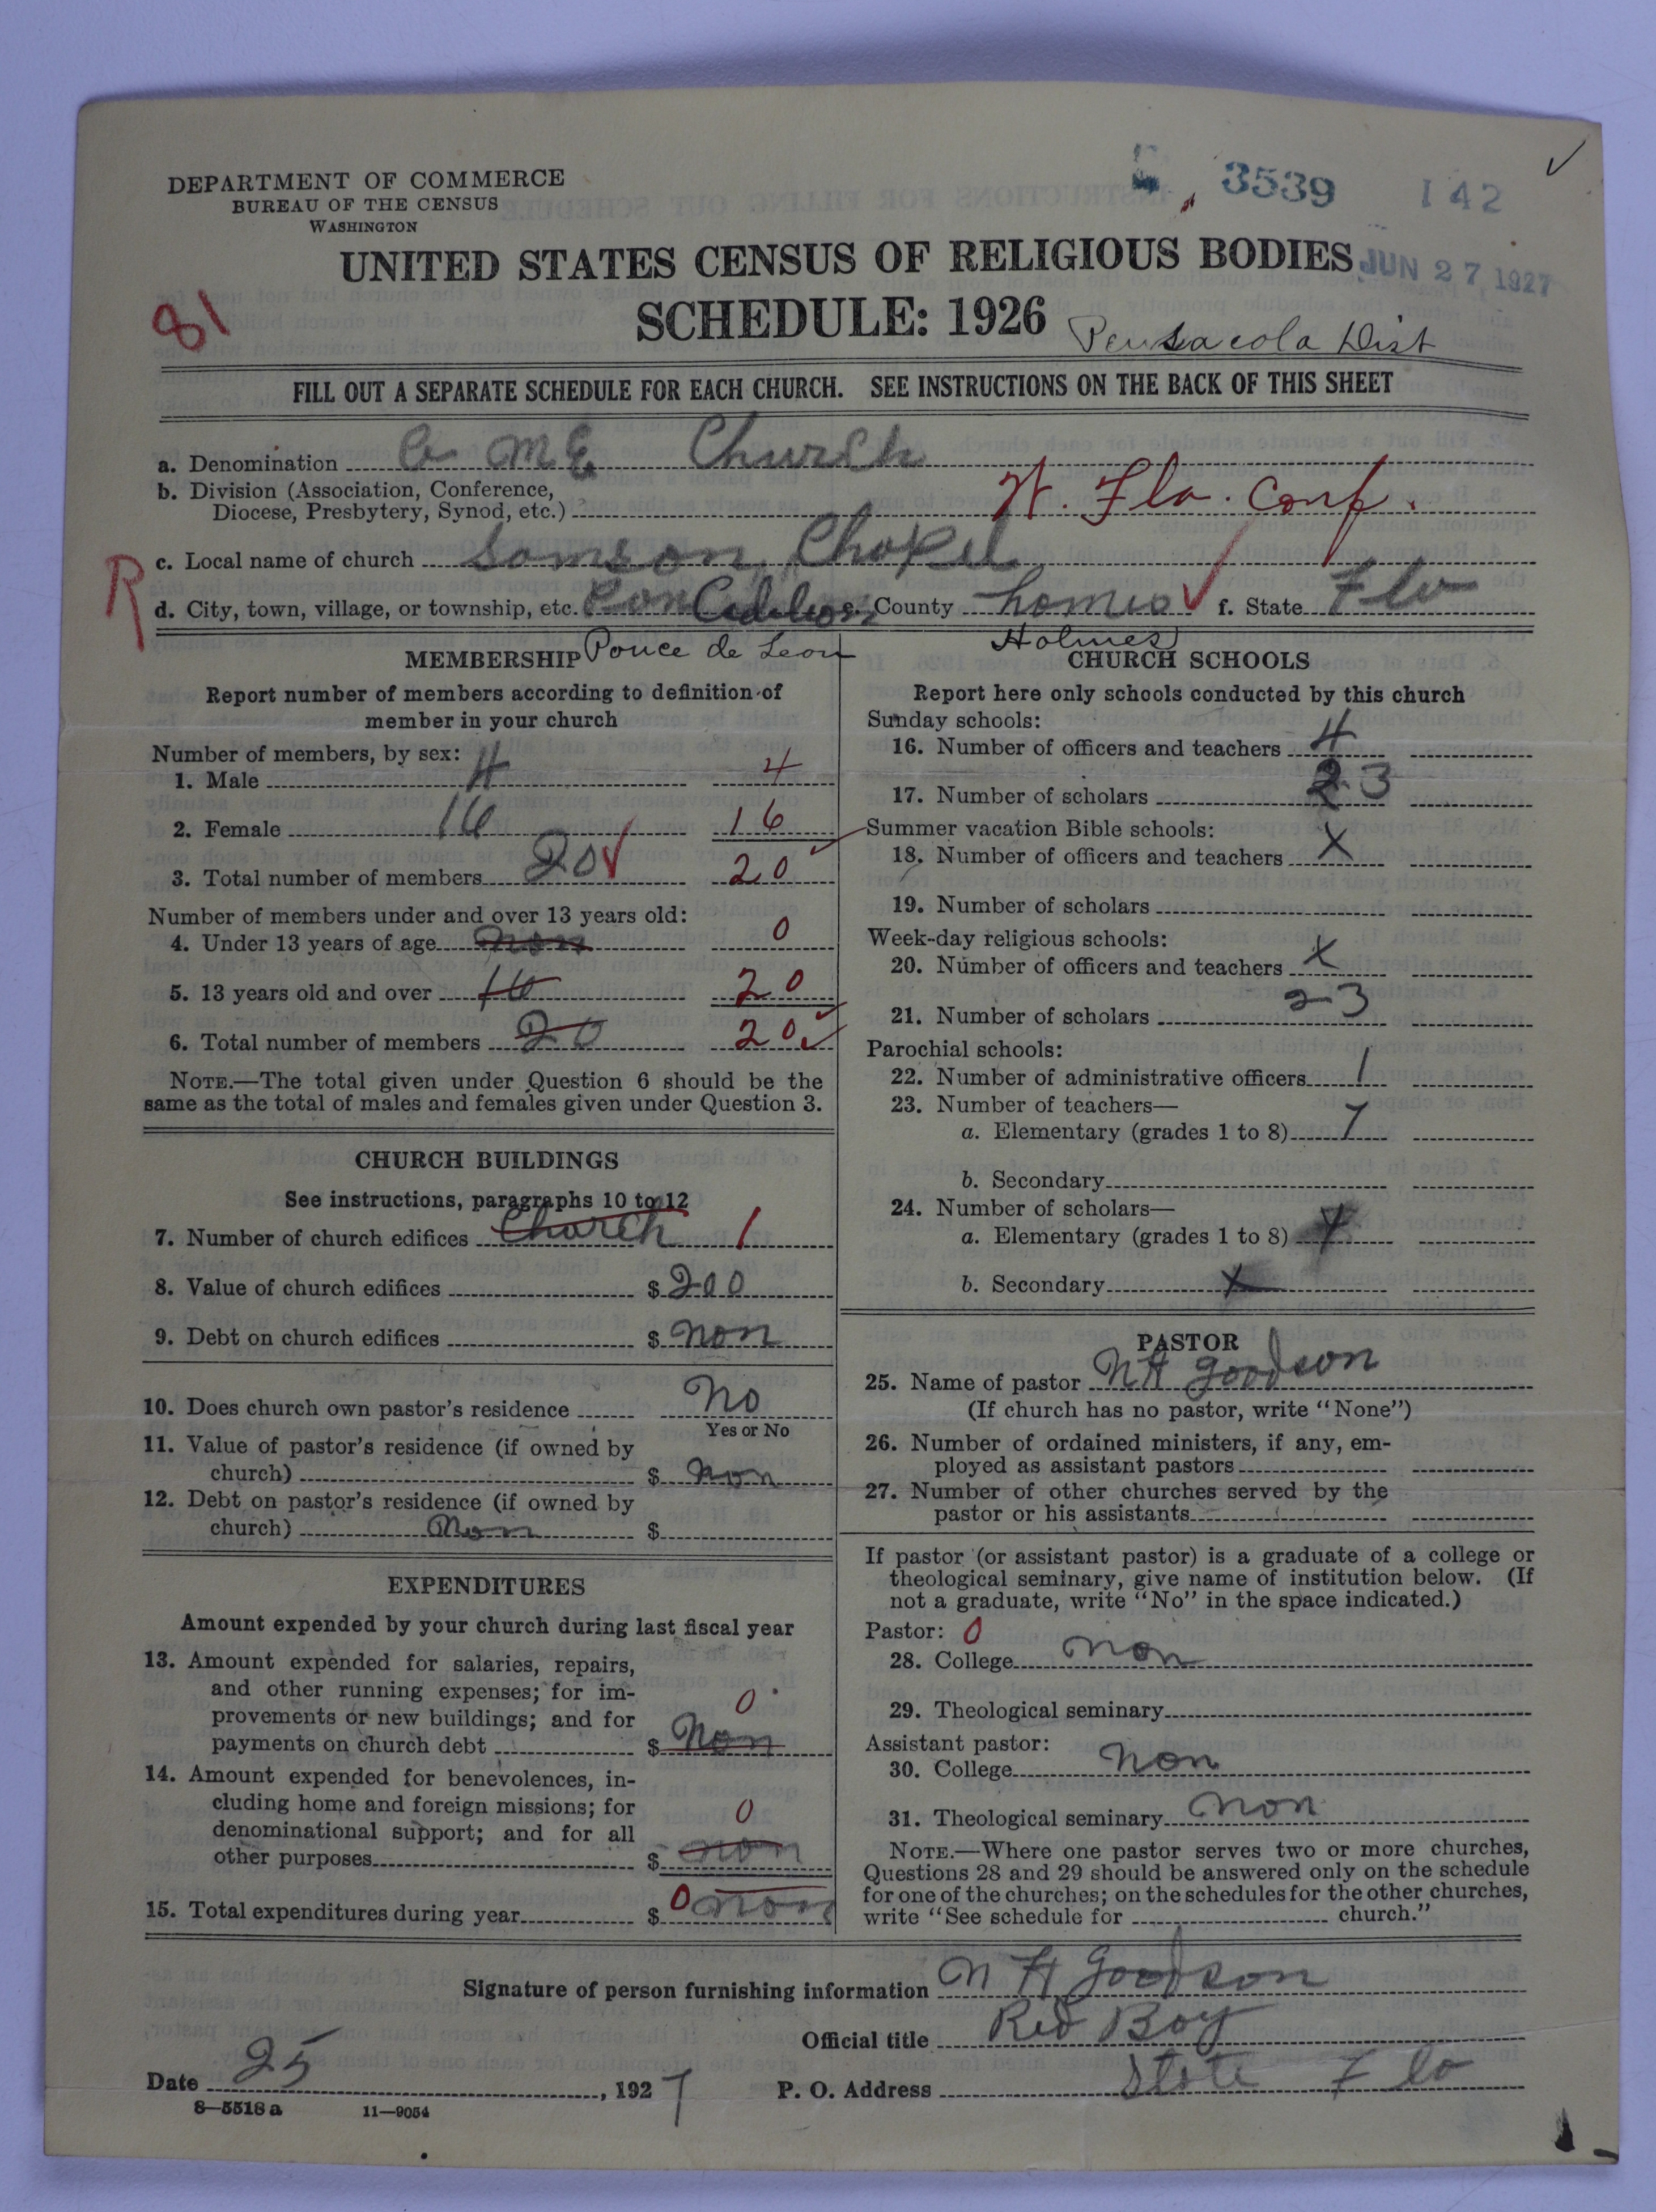 DEPARTMENT OF COMMERCE
BUREAU OF THE CENSUS
WASHINGTON
3539 142
UNITED STATES CENSUS OF RELIGIOUS BODIES
JUN 27 1927
SCHEDULE: 1926
81
Pensacola Dist
FILL OUT A SEPARATE SCHEDULE FOR EACH CHURCH. SEE INSTRUCTIONS ON THE BACK OF THIS SHEET
a. Denomination M E Church
b. Division (Association, Conference,
Diocese, Presbytery, Synod, etc.) W. Fla. Conf.
R
c. Local name of church Samson Chapel
d. City, town, village, or township, etc. e. County homes f. State Fla
Ponce de Leon
Holmes
MEMBERSHIP
Report number of members according to definition of
member in your church
Number of members, by sex:
1. Male 4 4
2. Female 16 16
3. Total number of members 20 20
Number of members under and over 13 years old:
4. Under 13 years of age non 0
5. 13 years old and over 16 20
6. Total number of members 20 20
NOTE.—The total given under Question 6 should be the
same as the total of males and females given under Question 3.
CHURCH BUILDINGS
See instructions, paragraphs 10 to 12
7. Number of church edifices Church 1
8. Value of church edifices $ 200
9. Debt on church edifices $ non
10. Does church own pastor's residence No
Yes or No
11. Value of pastor's residence (if owned by
church) $ non
12. Debt on pastor's residence (if owned by
church) Non $
EXPENDITURES
Amount expended by your church during last fiscal year
13. Amount expended for salaries, repairs,
and other running expenses; for im-
provements or new buildings; and for 0
payments on church debt $ Non
14. Amount expended for benevolences, in-
cluding home and foreign missions; for
denominational support; and for all 0
other purposes $ non
15. Total expenditures during year $ 0 non
CHURCH SCHOOLS
Report here only schools conducted by this church
Sunday schools:
16. Number of officers and teachers 4
17. Number of scholars 23
Summer vacation Bible schools:
18. Number of officers and teachers X
19. Number of scholars
Week-day religious schools:
20. Number of officers and teachers X
21. Number of scholars 23
Parochial schools:
22. Number of administrative officers 1
23. Number of teachers—
a. Elementary (grades 1 to 8) 7
b. Secondary
24. Number of scholars—
a. Elementary (grades 1 to 8)
b. Secondary X
PASTOR
25. Name of pastor N H Goodson
(If church has no pastor, write "None")
26. Number of ordained ministers, if any, em-
ployed as assistant pastors
27. Number of other churches served by the
pastor or his assistants
If pastor (or assistant pastor) is a graduate of a college or
theological seminary, give name of institution below. (If
not a graduate, write "No" in the space indicated.)
Pastor: 0
28. College non
29. Theological seminary
Assistant pastor:
30. College non
31. Theological seminary non
NOTE.—Where one pastor serves two or more churches,
Questions 28 and 29 should be answered only on the schedule
for one of the churches; on the schedules for the other churches,
write "See schedule for church."
Signature of person furnishing information N H Goodson
Official title Red Bay
Date 25, 1927 P. O. Address State Fla
8—5518 a 11—9054